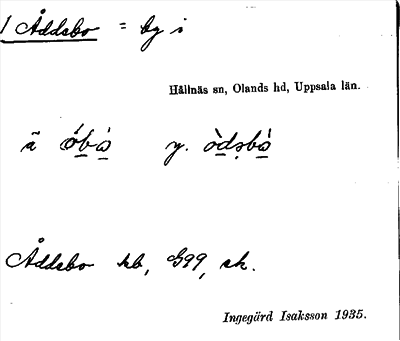 1 Åddebo = by i
Hållnäs sn, Olands hd, Uppsala län.
ä ó̱bà̱ y. ò̱dsbà̱
Åddebo kb, G99, sk.
Ingegärd Isaksson 1935.